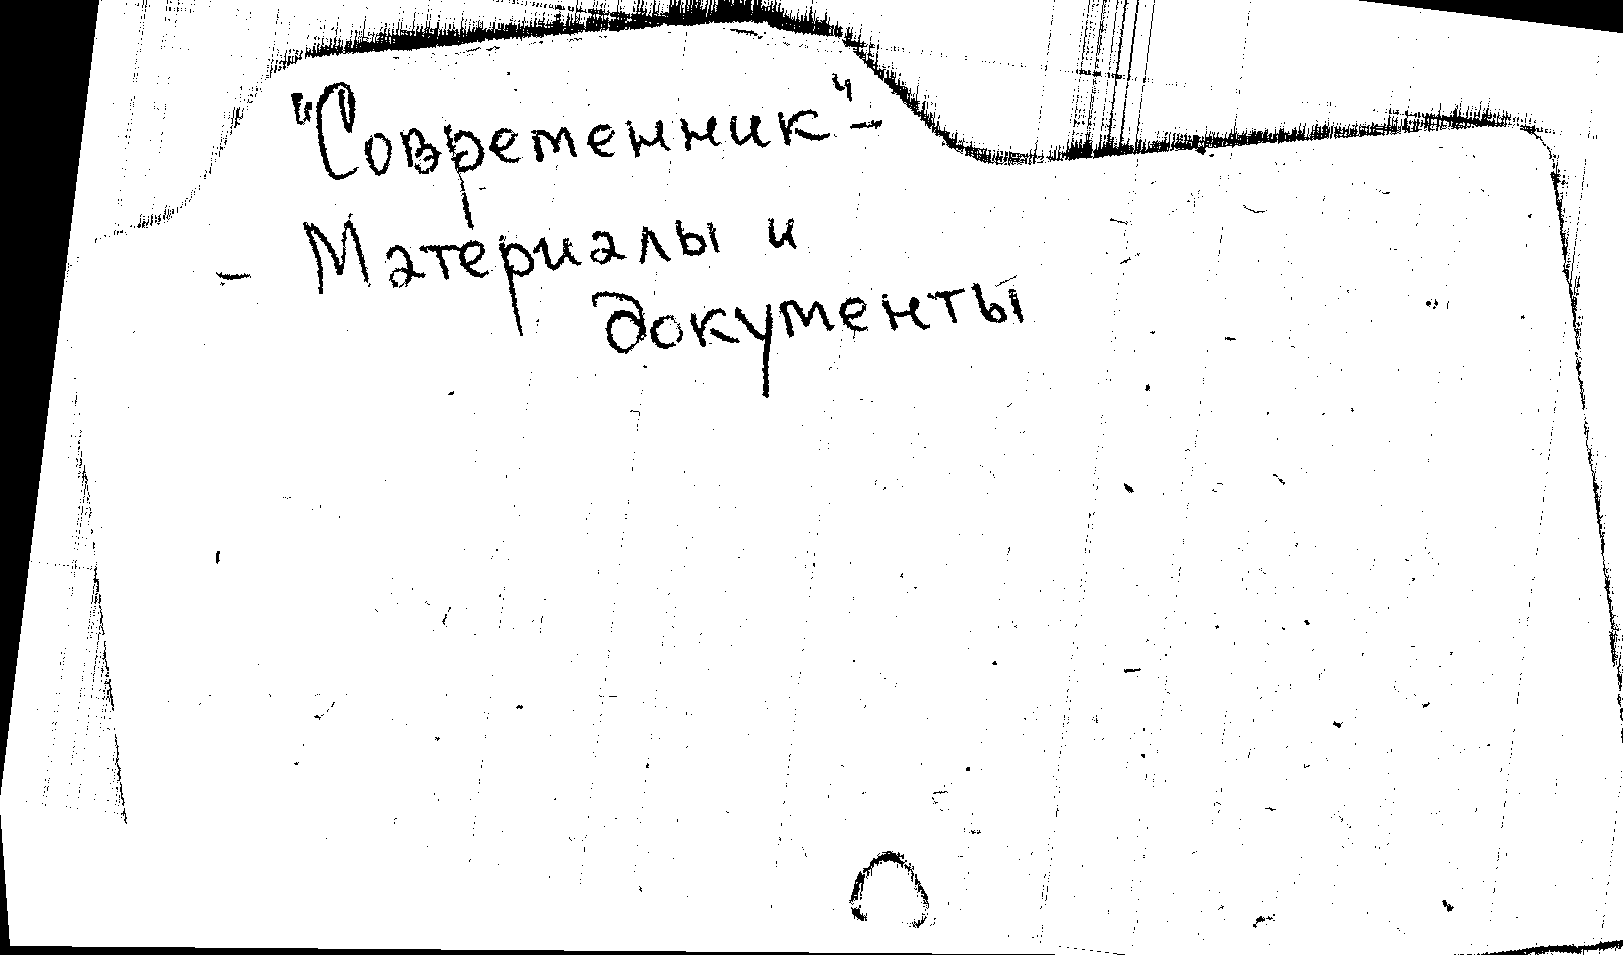 "Современник" –
– Материалы и
документы